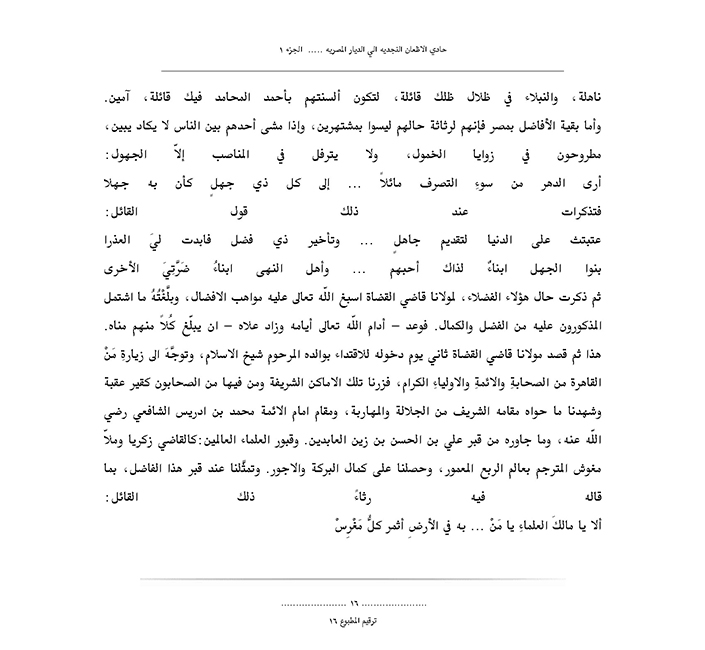 حادي الاظعان النجديه الي الديار المصريه ..... الجزء ١
ناهلة، والنبلاء في ظلال ظلك قائلة، لتكون ألسنتهم بأحمد المحامد فيك قائلة، آمين.
وأما بقية الأفاضل بمصر فإنهم لرثاثة حالهم ليسوا بمشتهرين، وإذا مشى أحدهم بين الناس لا يكاد يبين،
مطروحون في زوايا الخمول، ولا يترفل في المناصب إلاّ الجهول:
أرى الدهر من سوءِ التصرف مائلاً ... إلى كل ذي جهلٍ كأن به جهلا
فتذكرات عند ذلك قول القائل:
عتبتث على الدنيا لتقديم جاهلٍ ... وتأخير ذي فضل فابدت ليَ العذرا
بنوا الجهل ابناءُ لذاك أحبهم ... وأهل النهى ابناءُ ضَرَّتِيَ الأخرى
ثم ذكرت حال هؤلاء الفضلاء، لمولانا قاضي القضاة اسبغ اللّه تعالى عليه مواهب الافضال، وبلَّغْتُهُ ما اشتمل
المذكورون عليه من الفضل والكمال. فوعد – أدام اللّه تعالى أيامه وزاد علاه – ان يبلّغ كُلاً منهم مناه.
هذا ثم قصد مولانا قاضي القضاة ثاني يوم دخوله للاقتداء بوالده المرحوم شيخ الاسلام، وتوجَّهَ الى زيارةِ مَنْ
القاهرة من الصحابةِ والائمةِ والاولياءِ الكرام، فزرنا تلك الاماكن الشريفة ومن فيها من الصحابون كقير عقبة
وشهدنا ما حواه مقامه الشريف من الجلالة والمهاربة، ومقام امام الائمة محمد بن ادريس الشافعي رضي
اللّه عنه، وما جاوره من قبر علي بن الحسن بن زين العابدين. وقبور العلماء العالمين:كالقاضي زكريا وملاّ
مغوش المترجم بعالم الربع المعمور، وحصلنا على كمال البركة والاجور. وتمثَّلنا عند قبر هذا الفاضل، بما
قاله فيه رثاءً ذلك القائل:
ألا يا مالكَ العلماءِ يا مَنْ ... به في الأرضِ أثمر كلُّ مَغْرِسْ
...................... ١٦ ......................
ترقيم المطبوع ١٦